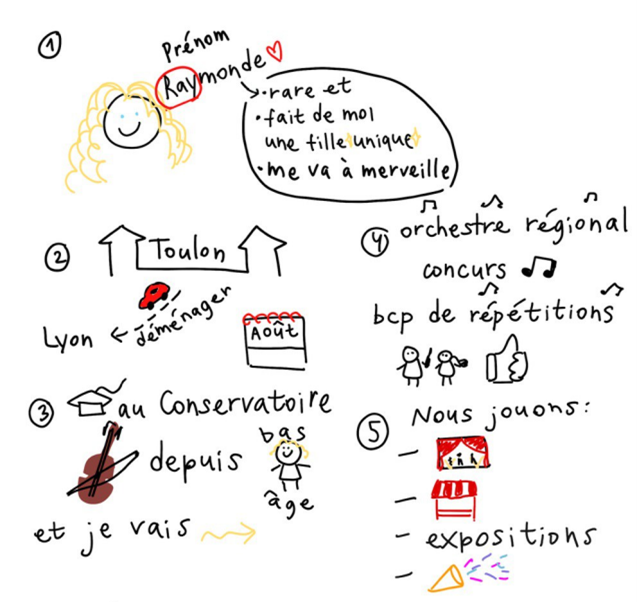 1
Prénom
Raymonde
• rare et
• fait de moi
une fille unique
• me va à merveille
2
Toulon
déménager
Lyon
Août
3
au Conservatoire
depuis
bas
âge
et je vais
4
orchestre régional
concurs
bcp de répétitions
5
Nous jouons:
–
–
– expositions
–